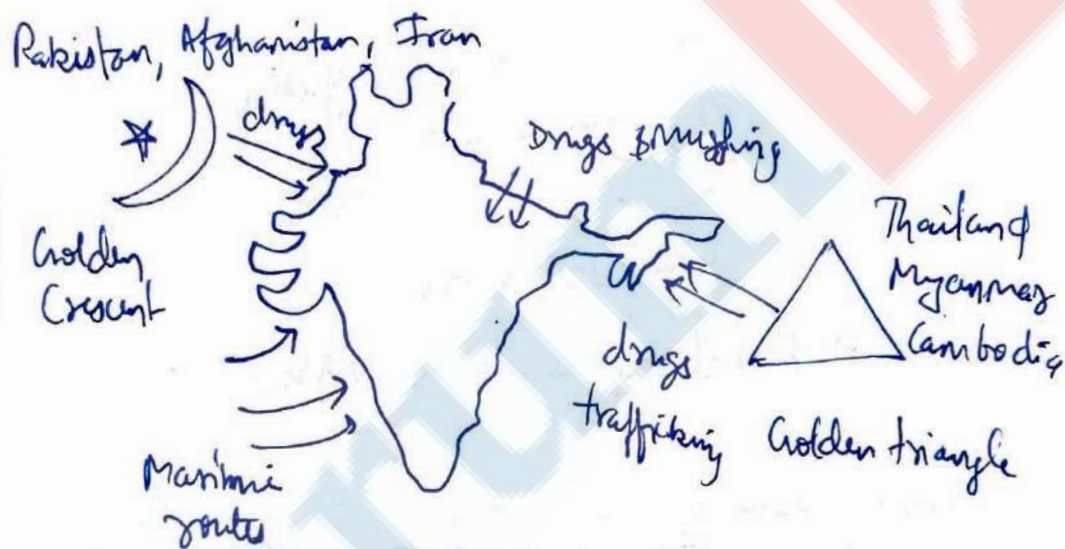 Pakistan, Afghanistan, Iran
drugs
Drugs smuggling
Golden
Crescent
Thailand
Myanmar
Cambodia
drugs
trafficking
Golden triangle
Maritime
routes